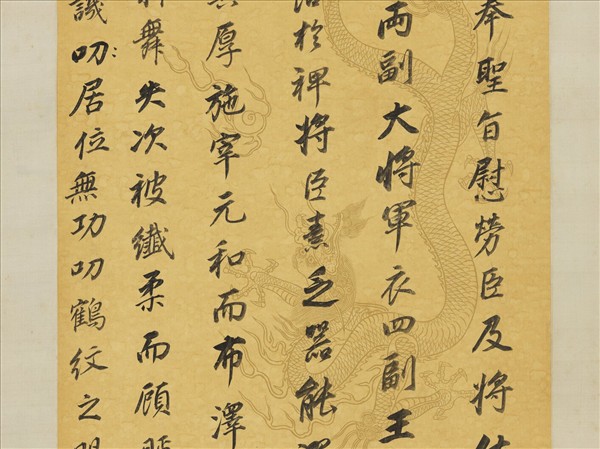 奉聖旨慰勞臣及將
両副大將軍衣四副王
於裨將臣素乏器能
厚施宰元和而布澤
舞失次被纖柔而顧
誠叨居位無功叨鶴紋之